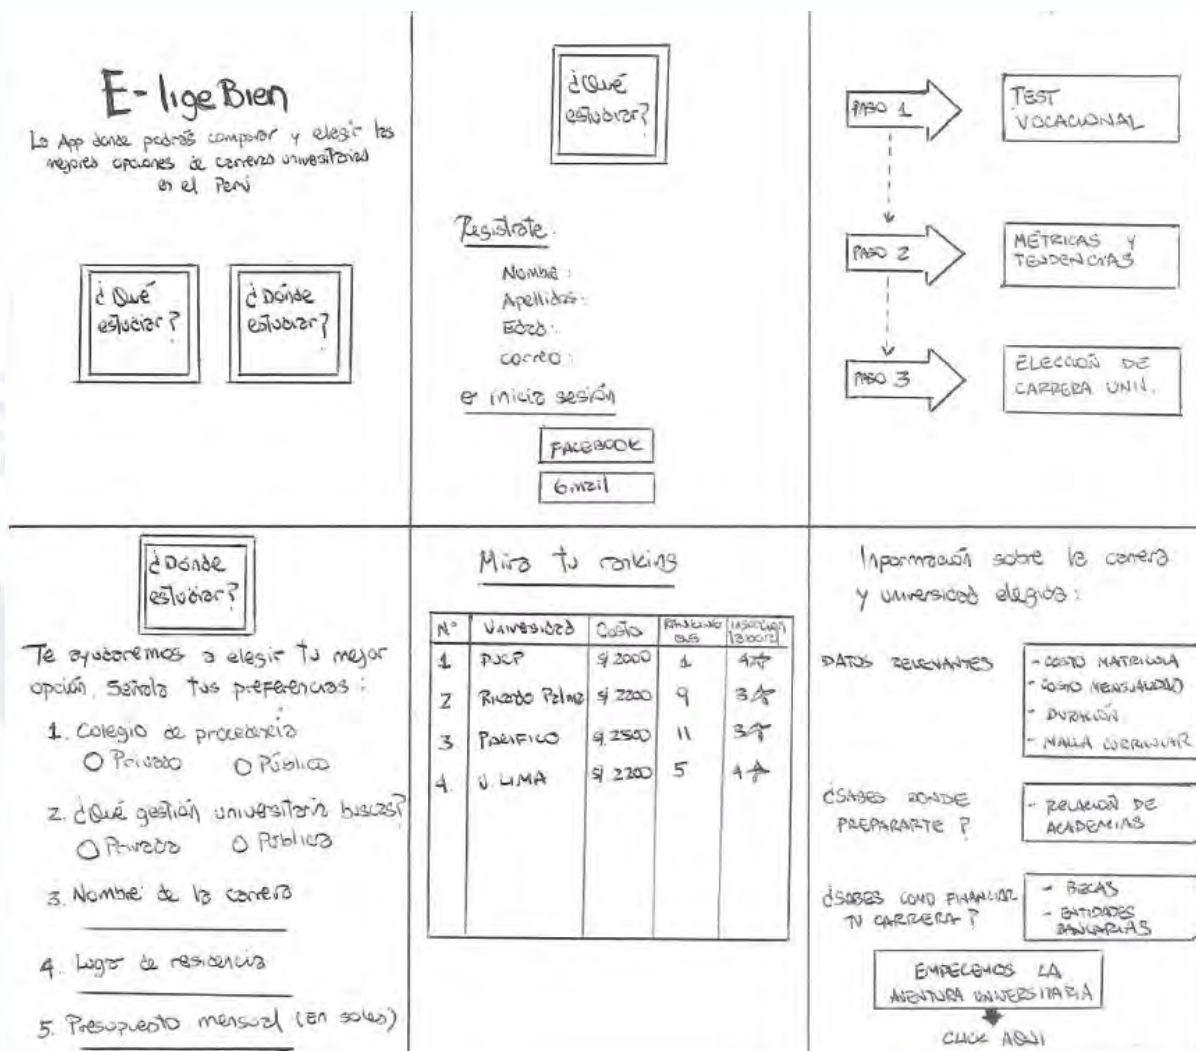 E-lige Bien
La App donde podrás comparar y elegir las
mejores opciones de carreras universitarias
en el Perú
¿Qué
estudiar?
¿Dónde
estudiar?
¿Qué
estudiar?
Registrate:
Nombre:
Apellidos:
Edad:
correo:
o inicia sesión
FACEBOOK
Gmail
PASO 1
TEST
VOCACIONAL
PASO 2
MÉTRICAS Y
TENDENCIAS
PASO 3
ELECCIÓN DE
CARRERA UNIV.
¿Dónde
estudiar?
Te ayudaremos a elegir tu mejor
opción. Señala tus preferencias:
1. Colegio de procedencia
Privado Público
2. ¿Qué gestión universitaria buscas?
Privada Pública
3. Nombre de la carrera
4. Lugar de residencia
5. Presupuesto mensual (En soles)
Mira tu ranking
N° Universidad Costo Ranking Inserción laboral
1 PUCP S/ 2000 1 4☆
2 Ricardo Palma S/ 2200 9 3☆
3 PACIFICO S/ 2500 11 3☆
4. U. LIMA S/ 2200 5 4☆
Información sobre la carrera
y universidad elegida:
DATOS RELEVANTES
- COSTO MATRICULA
- COSTO MENSUALIDAD
- DURACIÓN
- MALLA CURRICULAR
¿SABES DONDE
PREPARARTE?
- RELACIÓN DE
ACADEMIAS
¿SABES COMO FINANCIAR
TU CARRERA?
- BECAS
- ENTIDADES
BANCARIAS
EMPECEMOS LA
AVENTURA UNIVERSITARIA
CLICK AQUI